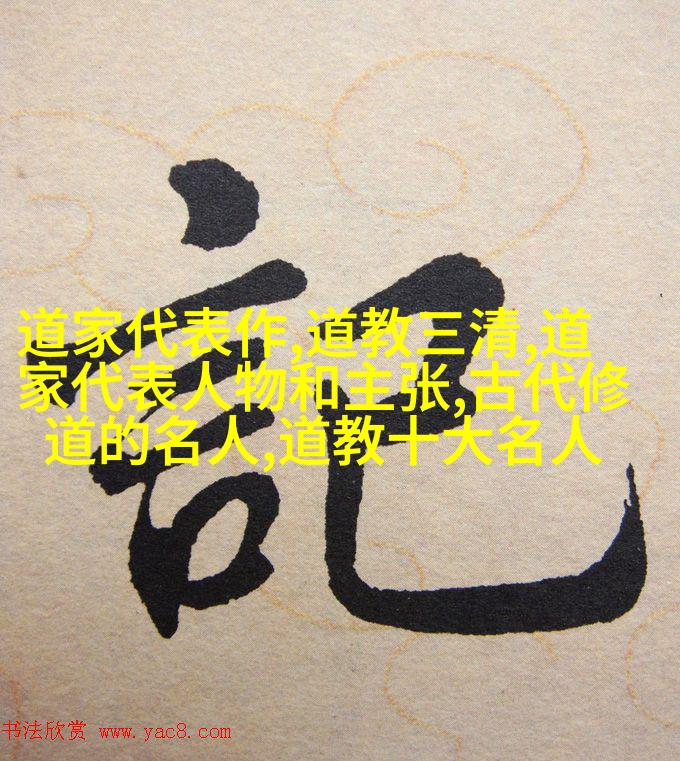 記
道家代表作,道教三清,道
家代表人物和主张,古代修
道的名人,道教十大名人
书法欣赏 www.yac8.com